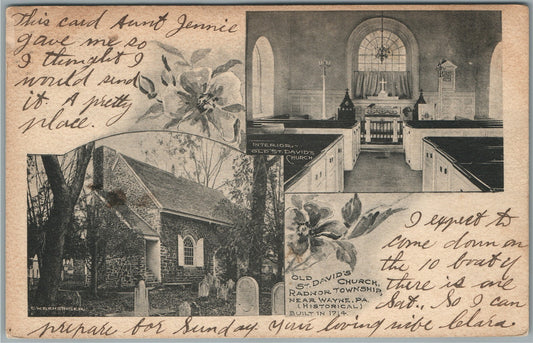 This card Aunt Jennie
gave me so
I thought I
would send
it A pretty
place.
INTERIOR,
OLD ST. DAVID'S
CHURCH.
OLD
ST. DAVID'S
CHURCH,
RADNOR TOWNSHIP,
NEAR WAYNE, PA.
(HISTORICAL)
BUILT IN 1714
I expect to
come down on
the 10 boat if
there is one
Sat., So I can
prepare for Sunday Your loving wife Clara